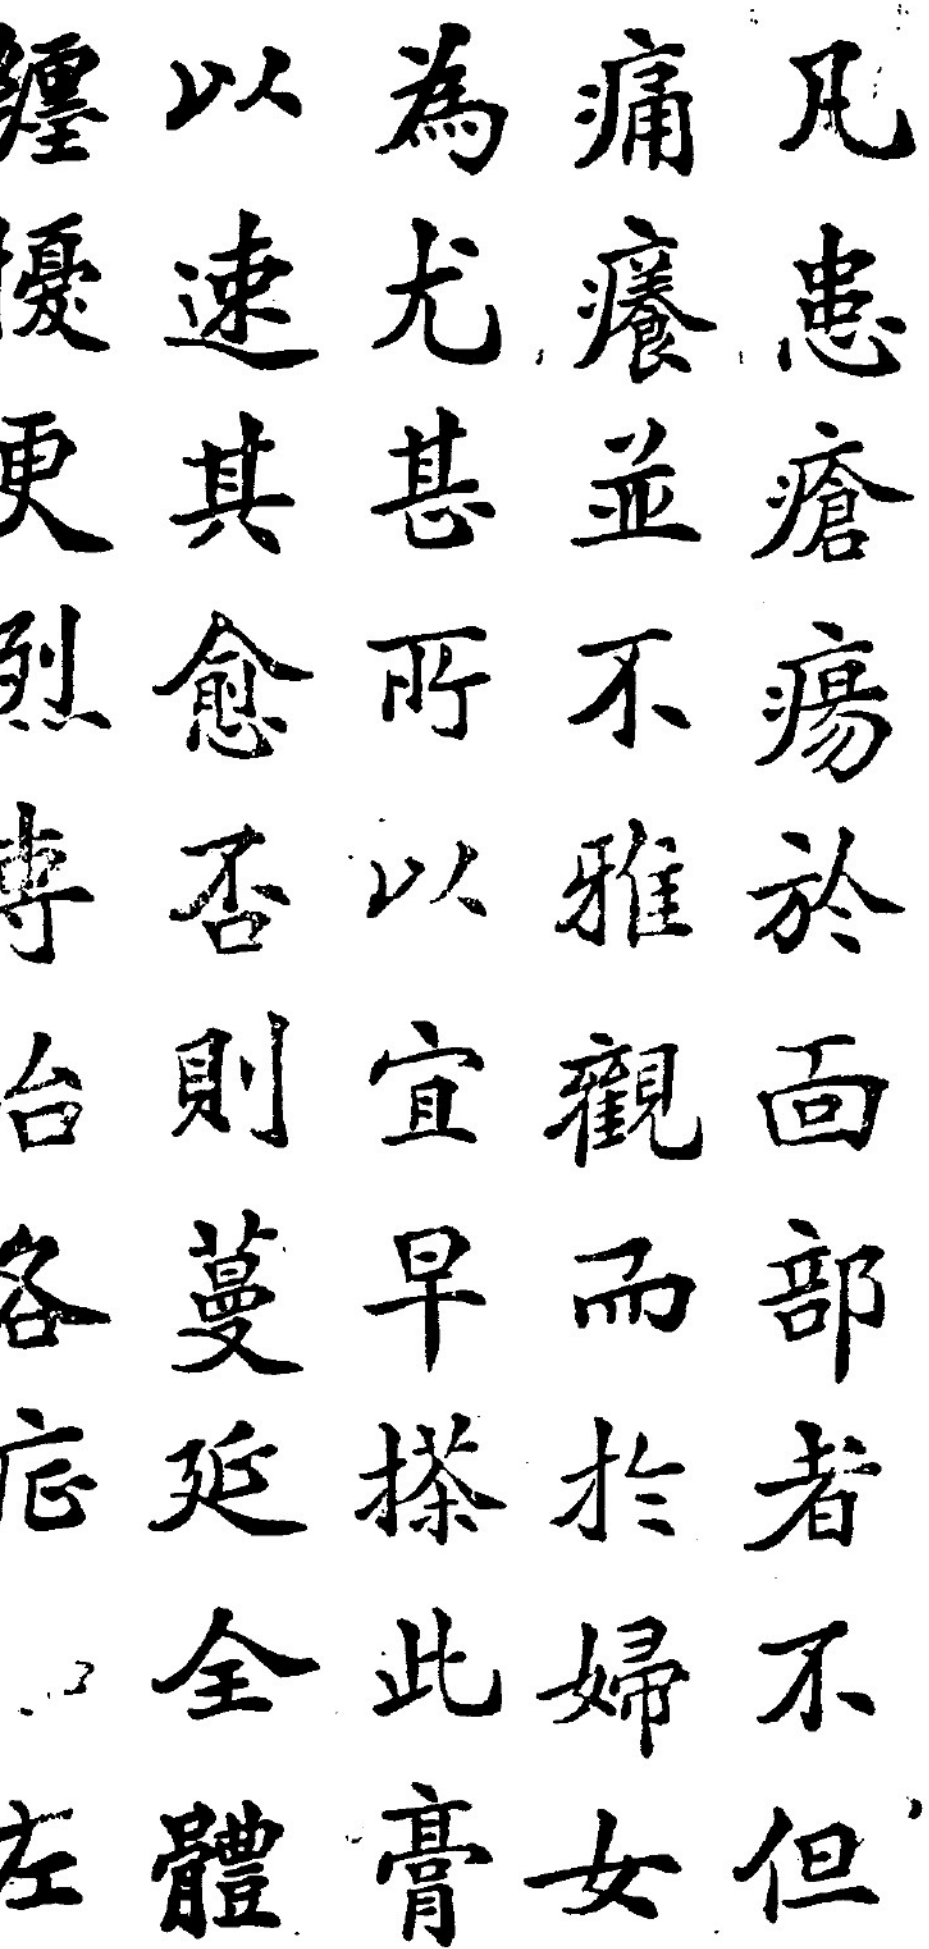 凡患瘡瘍於面部者不但
痛癢並不雅觀而於婦女
為尤甚所以宜早搽此膏
以速其愈否則蔓延全體
纏擾更烈專治各症左